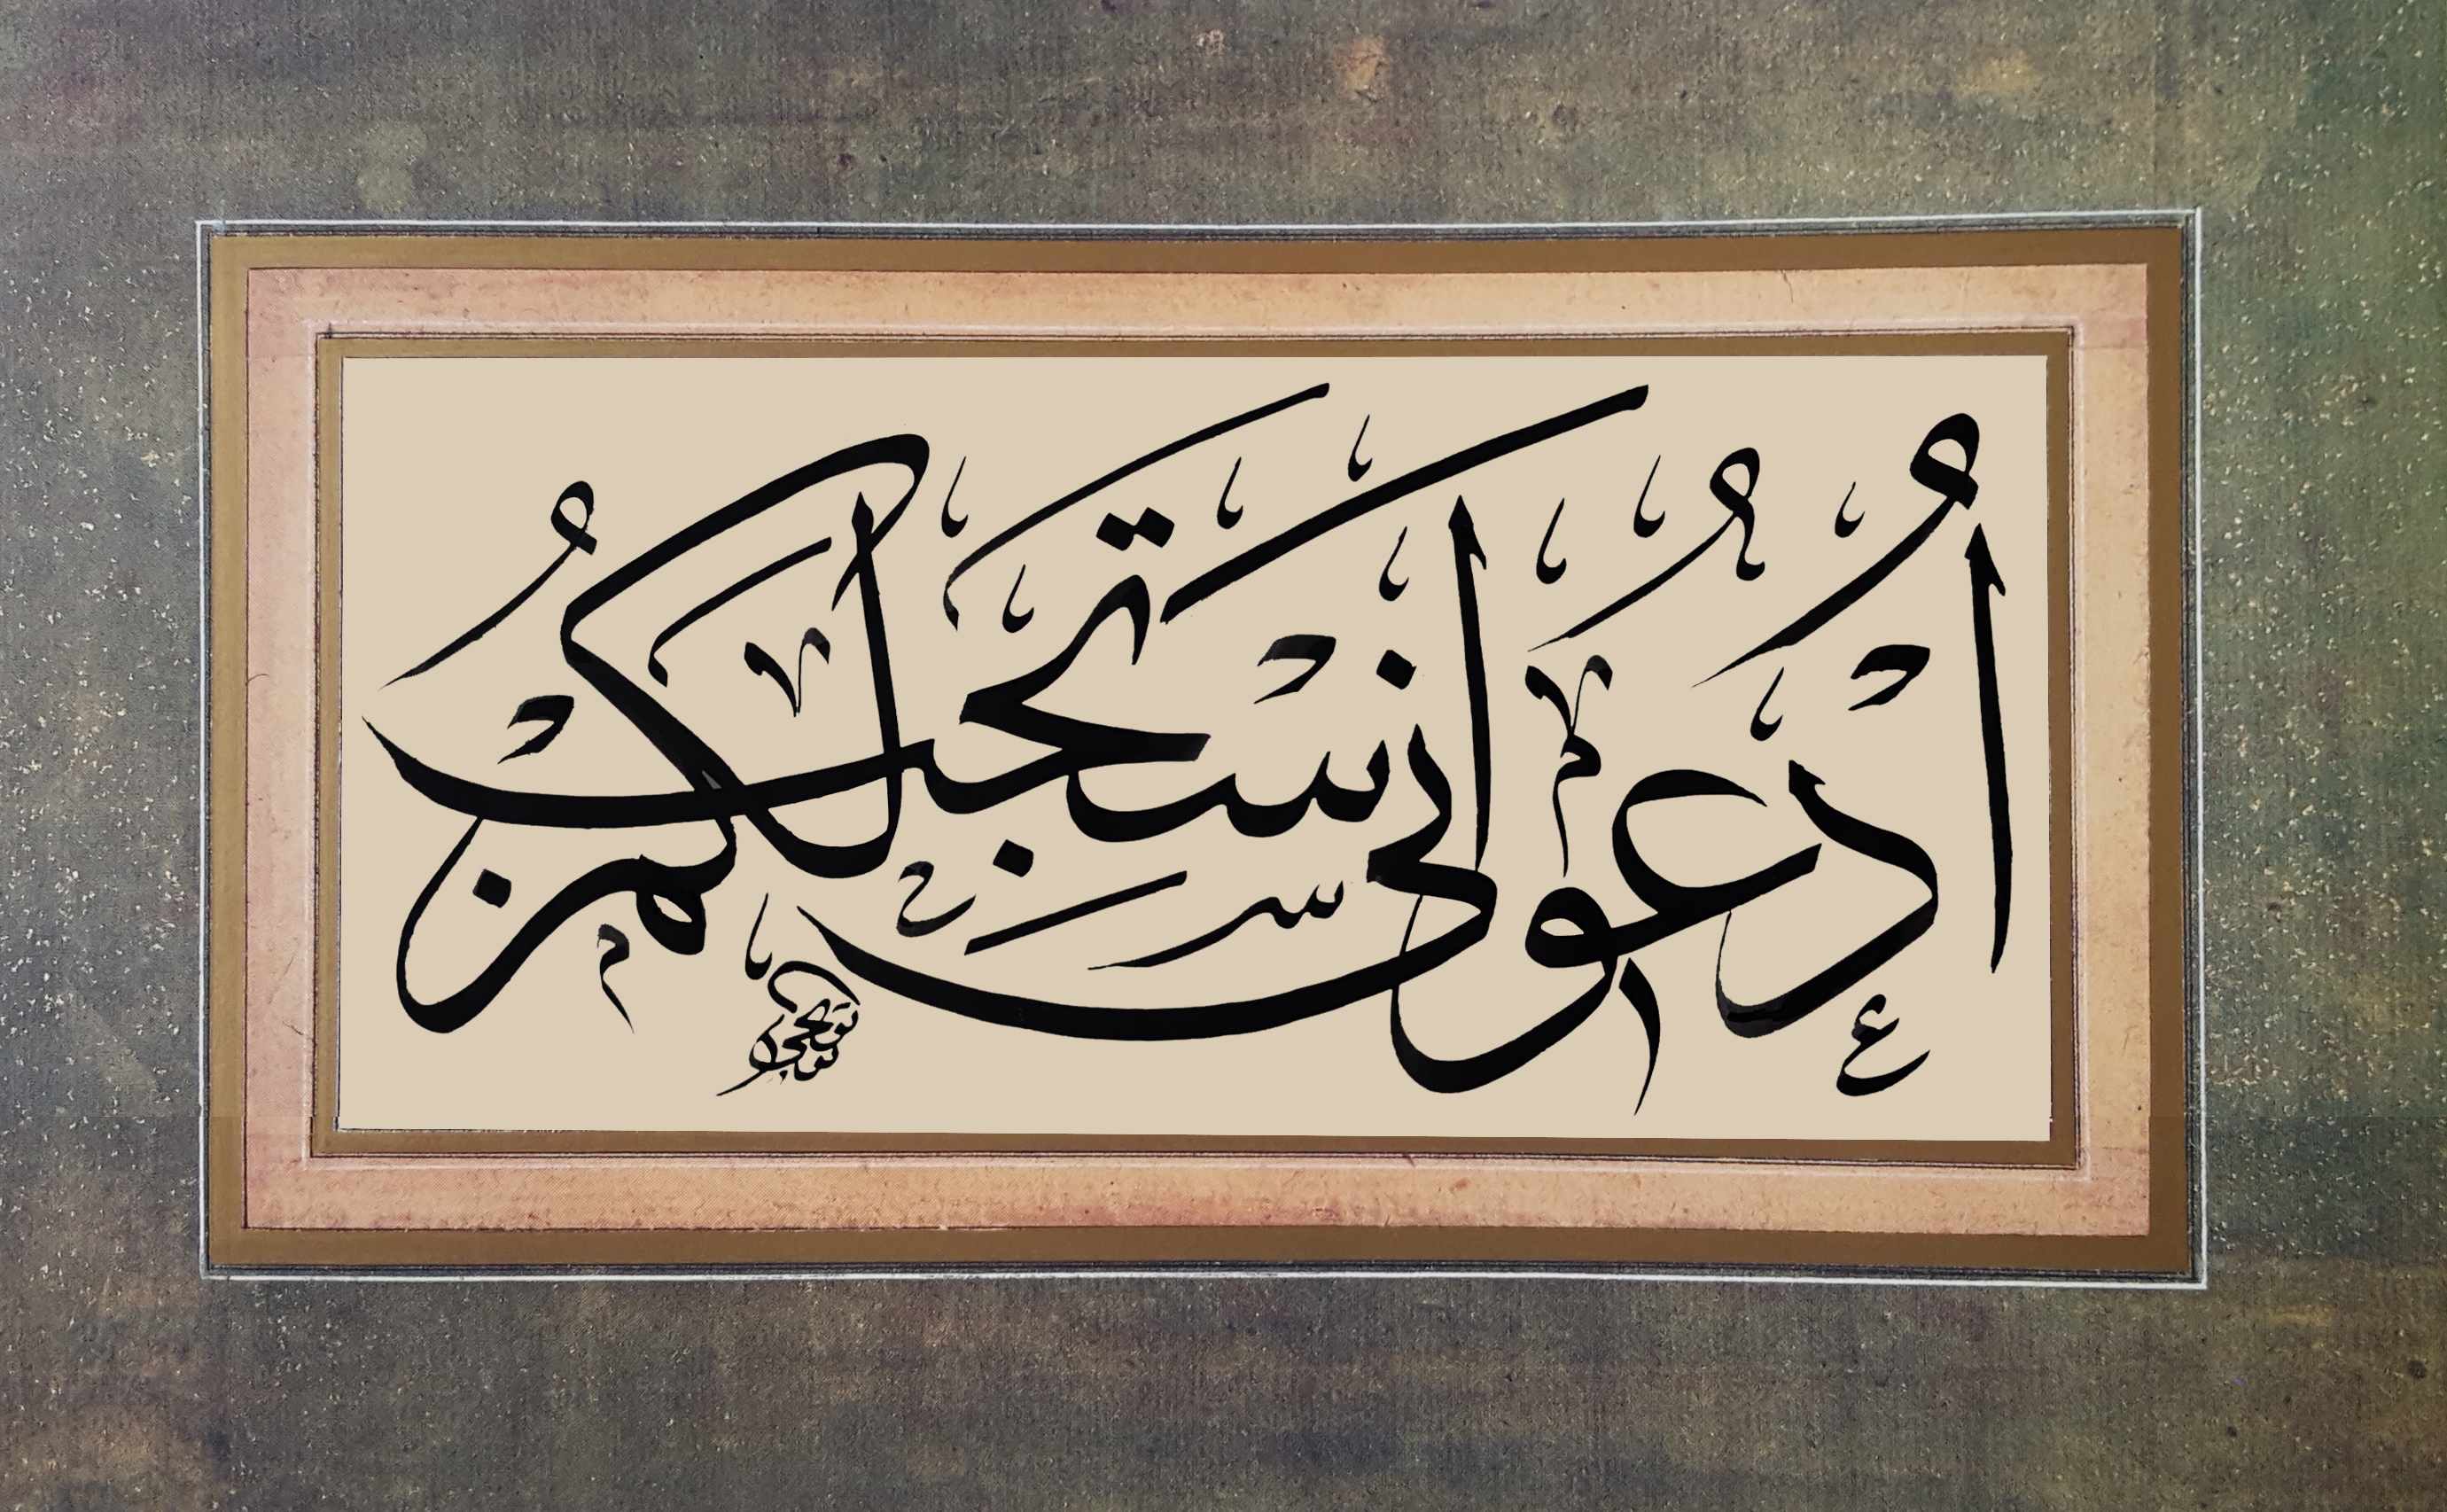 ٱدْعُونِىٓ أَسْتَجِبْ لَكُمْ